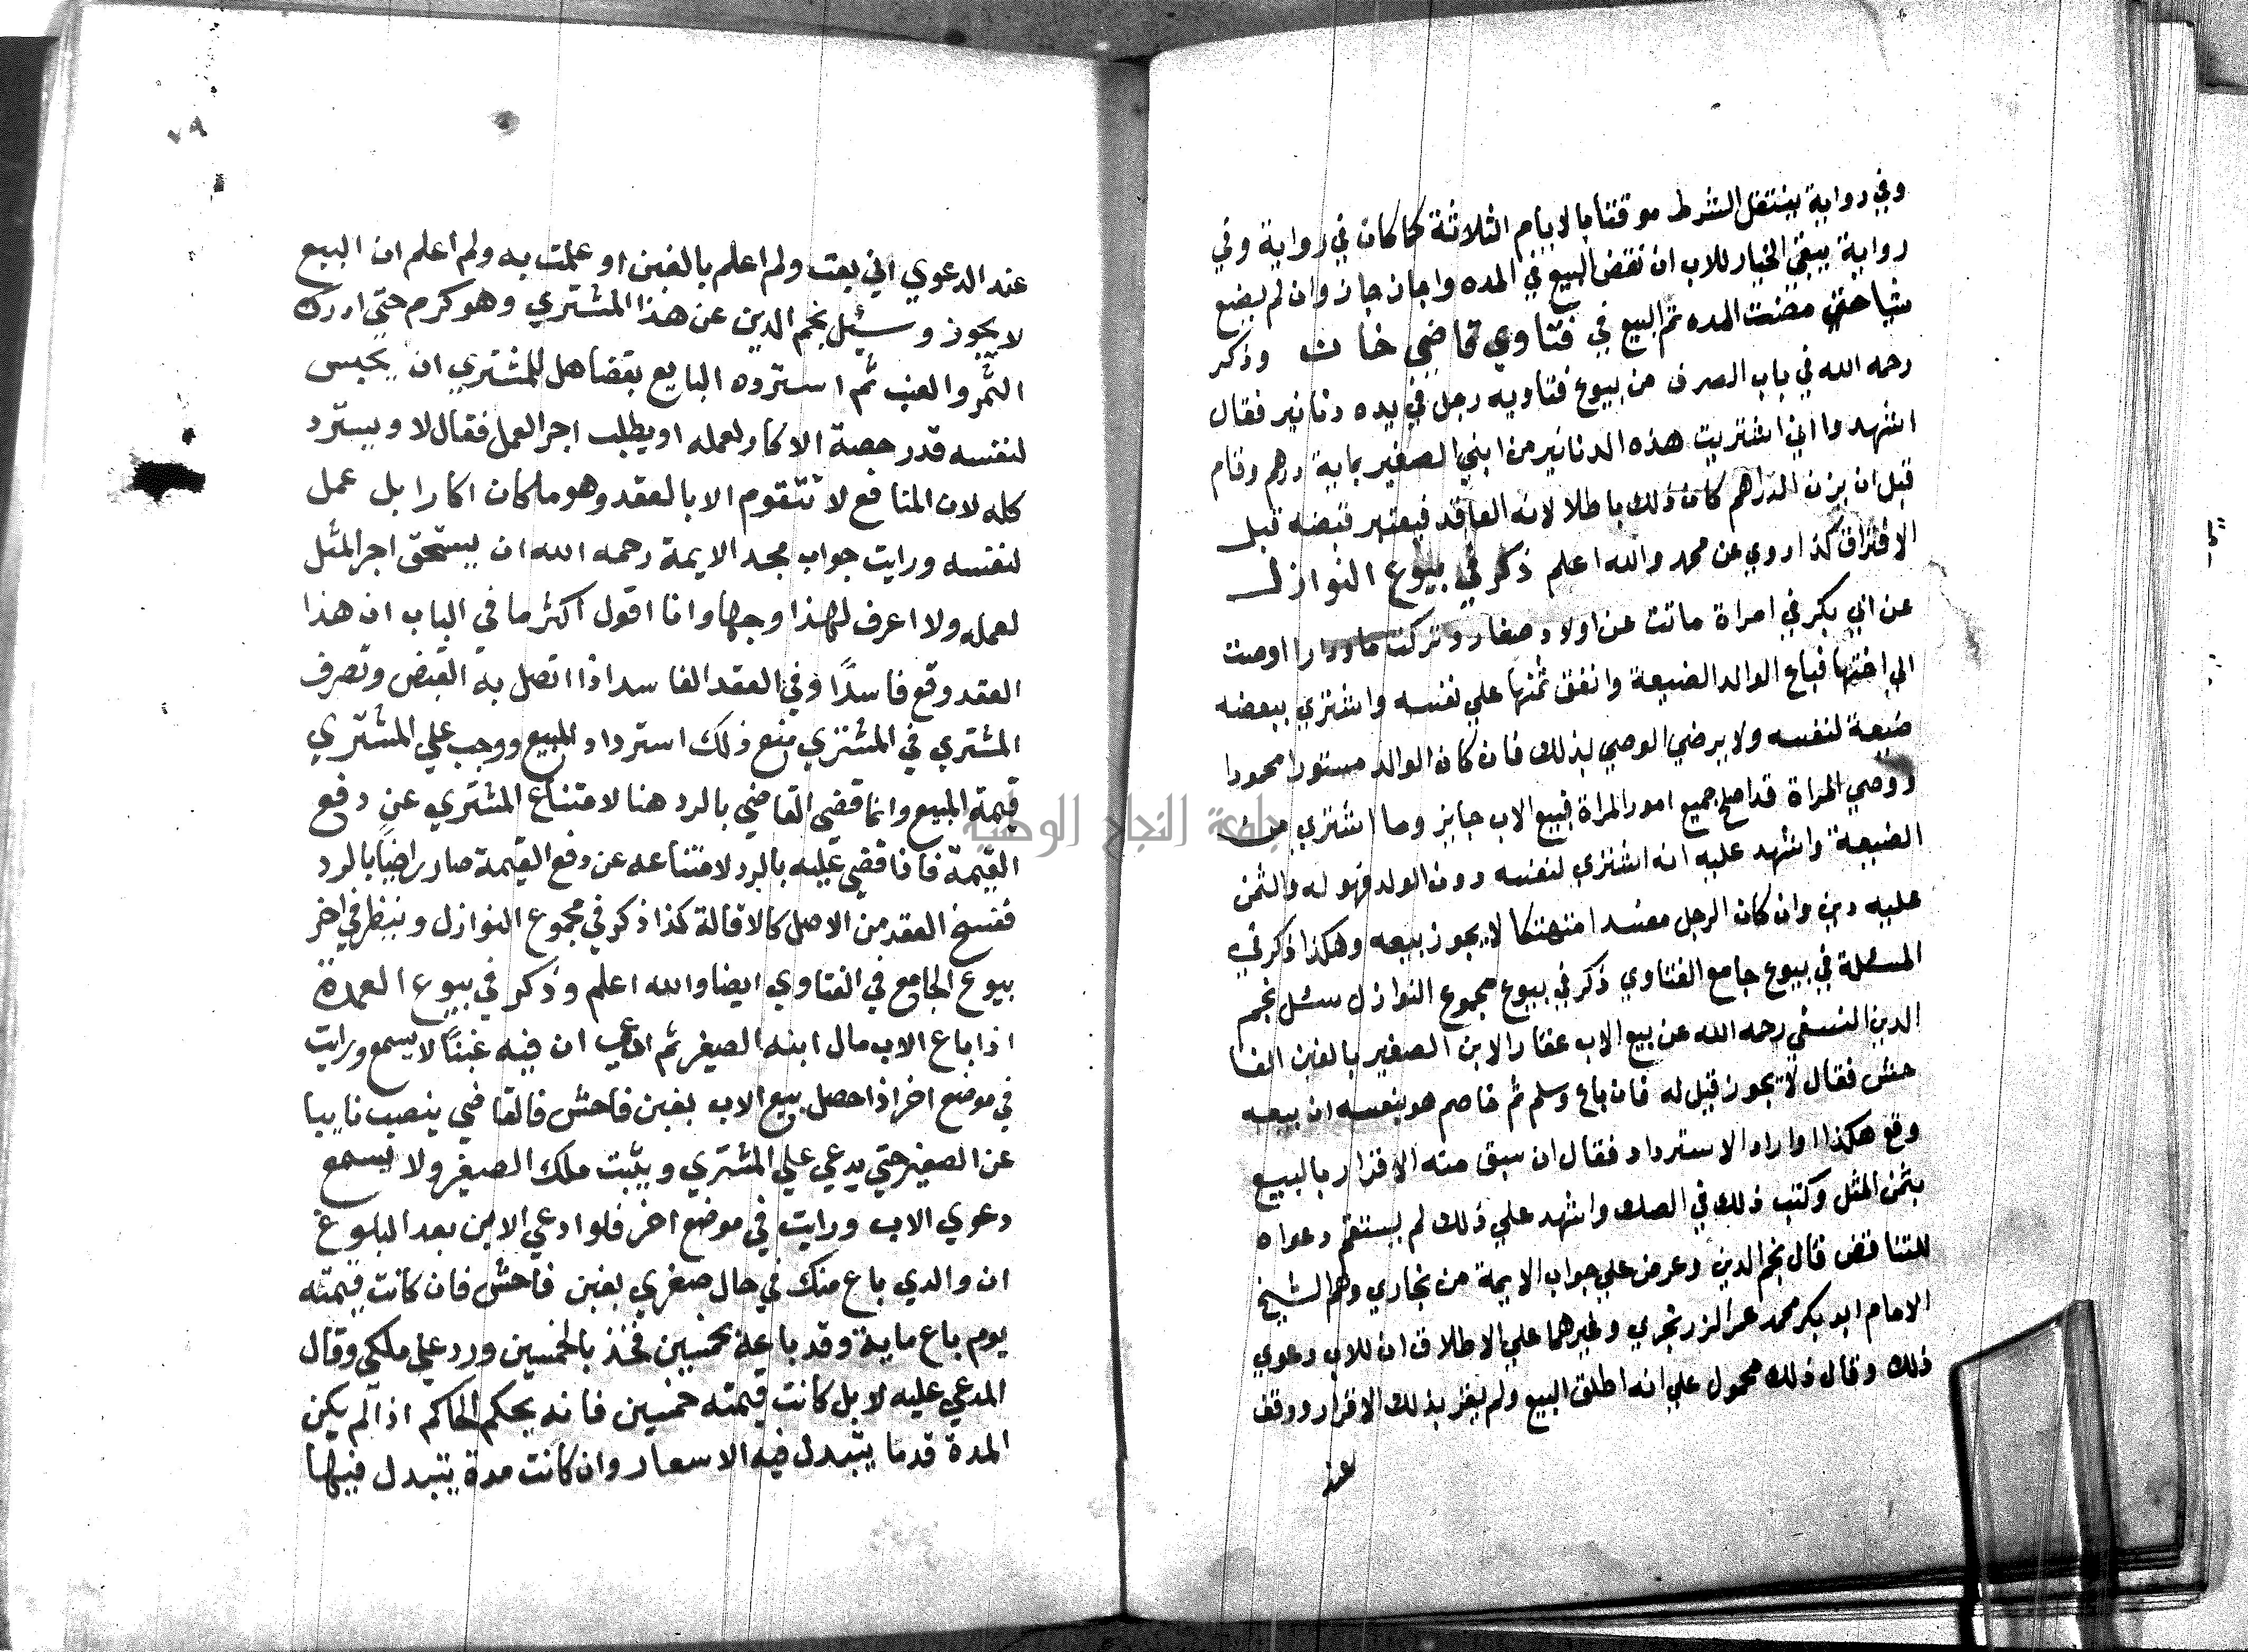 وفي رواية ينتقل الشرط موقتا بالايام الثلاثة كما كان في رواية وفي
رواية يبقي الخيار للاب ان نقض البيع في المده واجاز جاز وان لم يضع
شيا حتي مضت المده تم البيع في فتاوي قاضي خان وذكر
رحمه الله في باب الصرف من بيوع فتاويه رجل في يده دنانير فقال
اشهدوا اني اشتريت هذه الدنانير من ابني الصغير بماية درهم وقام
قبل ان يزن الدراهم كان ذلك باطلا لانه العاقد فيعتبر قبضه قبل
الافتراق كذا روي عن محمد والله اعلم ذكر في بيوع النوازل
عن ابي بكر في امراة ماتت عن اولاد صغار وتركت دارا اوصت
الي اختها فباع الوالد الضيعة وانفق ثمنها علي نفسه واشتري ببعضه
ضيعة لنفسه ولا يرضي الوصي بذلك فان كان الوالد مستورا محمودا
ووصي المراة قد اصلح جميع امور المراة فبيع الاب جايز وما اشتري من
الضيعة واشهد عليه انه اشتري لنفسه دون الولد فهو له والثمن
عليه دين وان كان الرجل مفسدا متهتكا لا يجوز بيعه وهكذا ذكر في
المسئلة في بيوع جامع الفتاوي ذكر في بيوع مجموع النوازل سئل نجم
الدين النسفي رحمه الله عن بيع الاب عقار الابن الصغير بالغبن الفا
حش فقال لا يجوز قيل له فان باع وسلم ثم خاصم هو بنفسه ان بيعه
وقع هكذا واراد الاسترداد فقال ان سبق منه الاقرار بالبيع
بثمن المثل وكتب ذلك في الصك واشهد علي ذلك لم يستقم دعواه
للتناقض قال نجم الدين وعرض علي جواب الايمة من بخاري وهم الشيخ
الامام ابو بكر محمد عمر الزرنجري وغيرهما علي الاطلاق ان للاب دعوي
ذلك وقال ذلك محمول علي انه اطلق البيع ولم يقر بذلك الاقرار ووقف
عند
٧٩
عند الدعوي اني بعت ولم اعلم بالغبن او علمت به ولم اعلم ان البيع
لا يجوز وسئيل نجم الدين عن هذا المشتري وهو كرم حتي ادرك
الثمر والعنب ثم استرده البايع بقضا هل للمشتري ان يحبس
لنفسه قدر حصة الاكار لعمله او يطلب اجر العمل فقال لا ويسترد
كله لان المنافع لا تتقوم الا بالعقد وهو ما كان اكارا بل عمل
لنفسه ورايت جواب مجد الايمة رحمه الله ان يستحق اجر المثل
لعمله ولا اعرف لهذا وجها وانا اقول اكثر ما في الباب ان هذا
العقد وقع فاسدًا وفي العقد الفاسد اذا اتصل به القبض وتصرف
المشتري في المشتري منع ذلك استرداد المبيع ووجب علي المشتري
قيمة المبيع وانما قضي القاضي بالرد هنا لامتناع المشتري عن دفع
القيمة فاذا قضي عليه بالرد لامتناعه عن دفع القيمة صار راضيًا بالرد
ففسخ العقد من الاصل كالاقالة كذا ذكر في مجموع النوازل وينظر في اخر
بيوع الجامع في الفتاوي ايضا والله اعلم وذكر في بيوع العمدة
اذا باع الاب مال ابنه الصغير ثم ادعي ان فيه غبنًا لا يسمع ورايت
في موضع اخر اذا حصل بيع الاب بغبن فاحش فالقاضي ينصب نايبا
عن الصغير حتي يدعي علي المشتري ويثبت ملك الصغير ولا يسمع
دعوي الاب ورايت في موضع اخر فلو ادعي الابن بعد البلوغ
ان والدي باع منك في حال صغري بغبن فاحش فان كانت قيمته
يوم باع ماية وقد باعه بخمسين فخذ بالخمسين ورد علي ملكي وقال
المدعي عليه لا بل كانت قيمته خمسين فانه يحكم الحاكم اذا لم يكن
المدة قد ما يتبدل فيه الاسعار وان كانت مدة يتبدل فيها
جامعة النجاح الوطنية